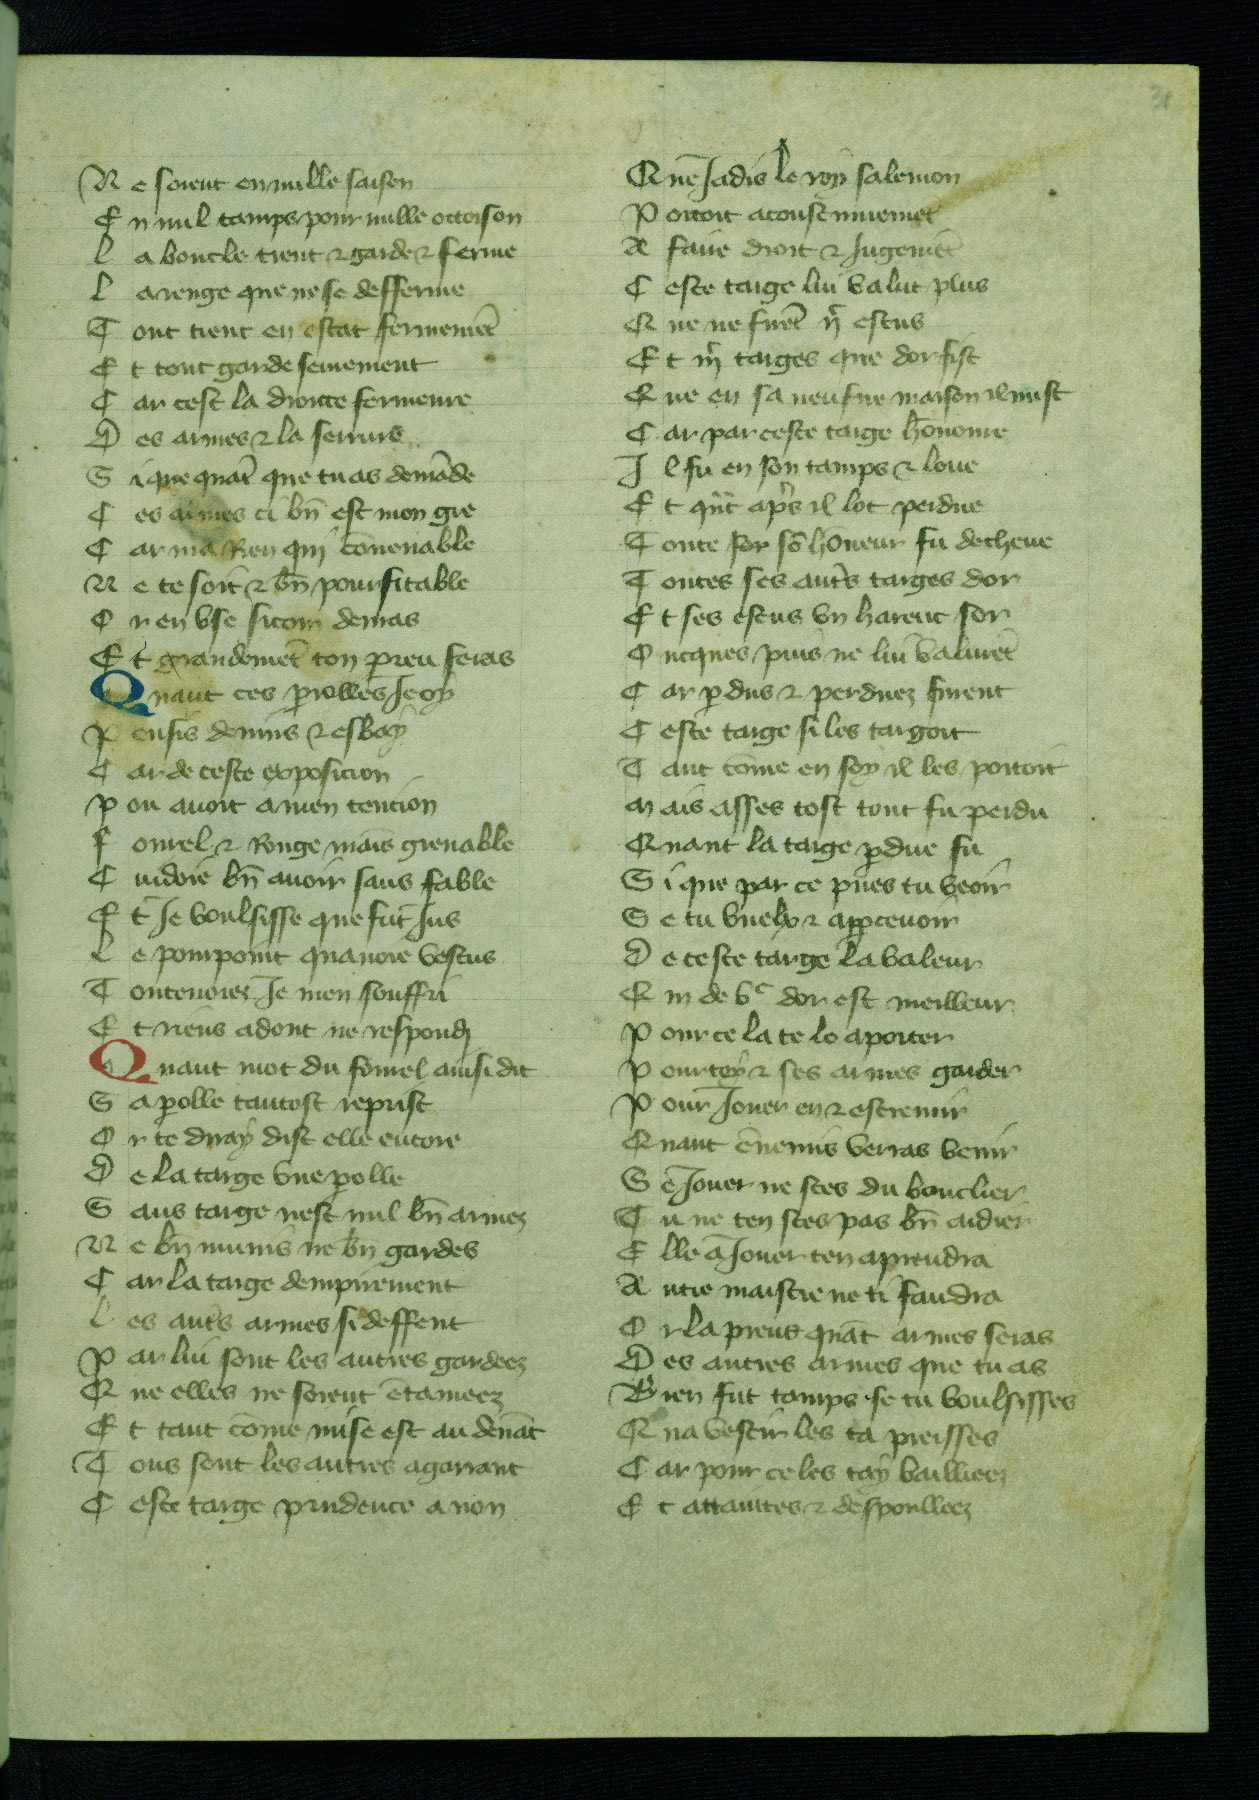 N e soient en nulle saison
E n nul tamps pour nulle occoison
L a boucle tient ⁊ garde ⁊ ferme
L a renge que ne se defferme
T out tient en estat fermemēt
E t tout garde seurement
C ar cest la droite fermeure
D es armes ⁊ la serrure
S i que quāt que tu as demāde
C es armes ci bn̄ est mon gre
C ar ma Rien qui cōuenable
N e te soit ⁊ bn̄ pourfitable
O r en vse si com deuras
E t grandemēt ton preu feras
Quant ces polles Je oy
P ensis deuins ⁊ esboy
C ar de ceste exposicion
P ou auoit a men tencion
F ourrel ⁊ Renge mais greuable
C uidoie bn̄ auoir sans fable
E t Je voulsisse que fut Jus
L e pourpoint quauoie vestus
T outeuoiez Je men souffri
E t riens adont ne respondi
Quant mot du forrel ainsi dit
S a polle tantost reprist
O r te diray dist elle encore
D e la targe vne polle
S ans targe nest nul bn̄ armez
N e bn̄ munis ne bn̄ gardes
C ar la targe dempirement
L es autˢ armes si deffent
P ar lui sont les autres gardeez
Q ue elles ne soient ētameez
E t tant cōme mise est au deuāt
T ous sont les autres a garrant
C este targe prudence a non
Q ue Jadis le roy salemon
P ortoit acoustumemēt
A faire droit ⁊ Jugemēt
C este targe lui valut plus
Q ue ne furēt escus
E t targes que dor fist
Q ue en sa neufue maison il mist
C ar par ceste targe hōnoure
I l fu en son tamps ⁊ loue
E t qn̄t aps il lot perdue
T oute sor sō hōneur fu decheue
T outes ses autˢ targes dor
E t ses escus vn harenc sor
O ncques puis ne lui valurēt
C ar pdus ⁊ perduez furent
C este targe si les targoit
T ant cōme en soy il les portoit
M ais asses tost tout fu perdu
Q uant la targe pdue fu
S i que par ce pues tu veoir
S e tu vuelx ⁊ appceuoir
D e ceste targe la valeur
Q ui de vᶜ dor est meilleur
P our ce la te lo a porter
P our toy ⁊ ses armes garder
P our Jouer en ⁊ escremir
Q uant ēnemis verras venir
S e Jouer ne sces du bouclier
T u ne ten sces pas bn̄ aidier
E lle a Jouer ten aprendra
A utre maistre ne ti faudra
O r la preng quāt armes seras
D es autres armes que tu as
B ien fut tamps se tu voulsisses
Q ua vestir les ta preisses
C ar pour ce les tay bailliees
E t attaintes ⁊ despoulleez